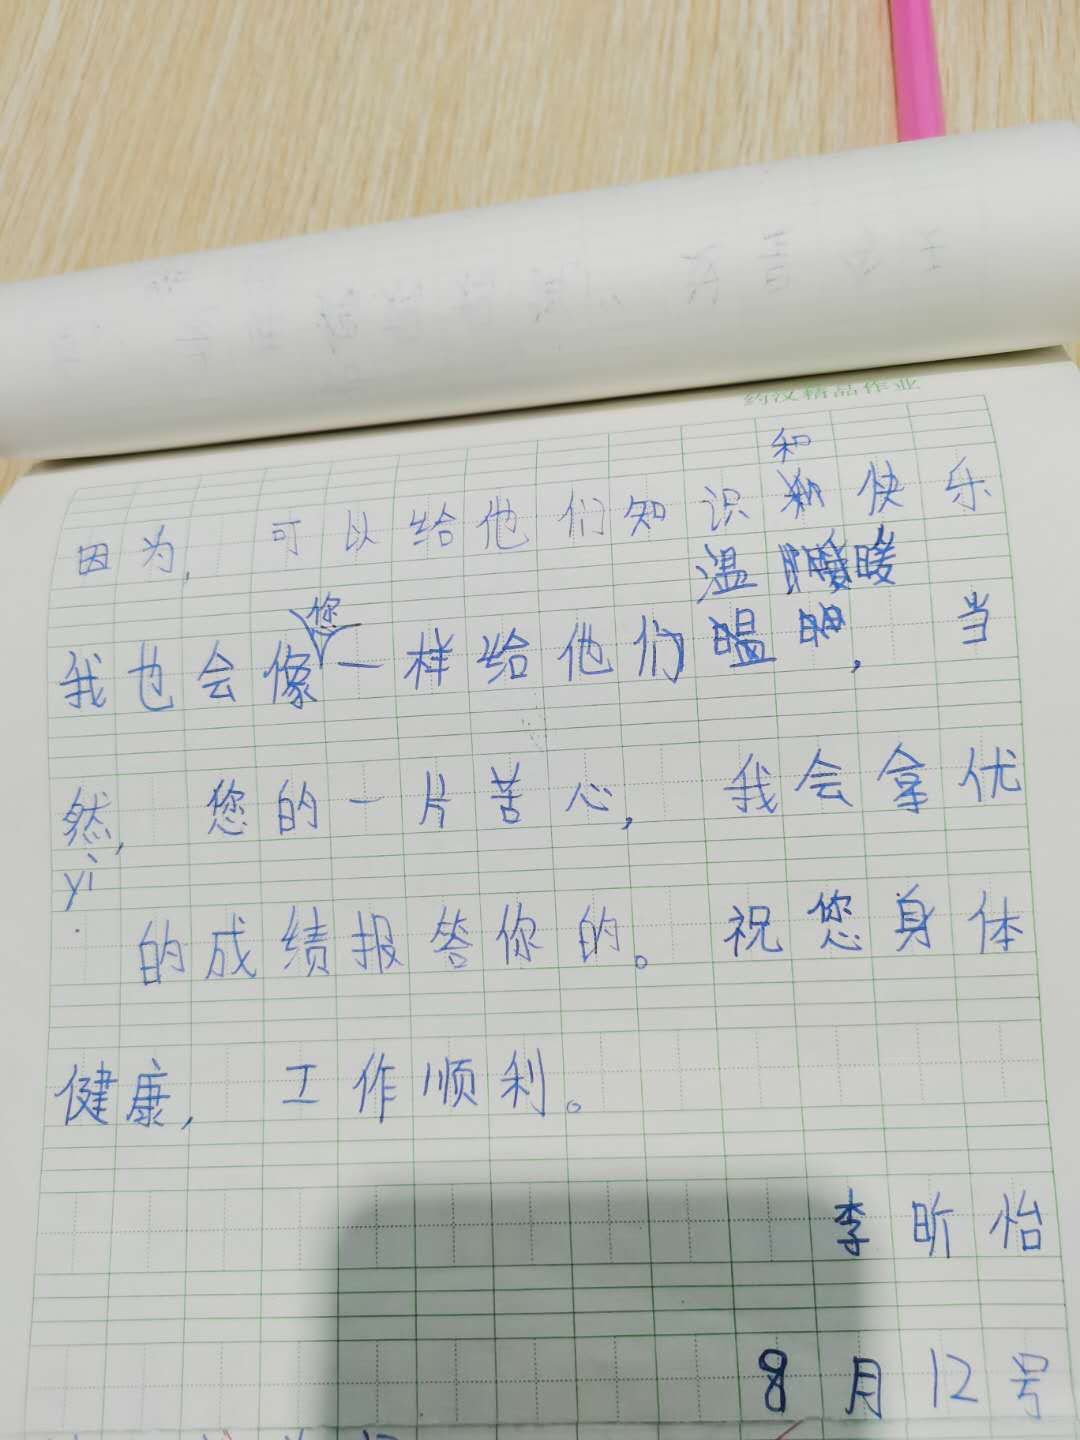 约汉精品作业
和
因为,可以给他们知识和快乐
温暖暖
我也会像您一样给他们温
当
然,您的一片苦心,我会拿优
yì
的成绩报答你的。祝您身体
健康,工作顺利。
李昕怡
8月12号